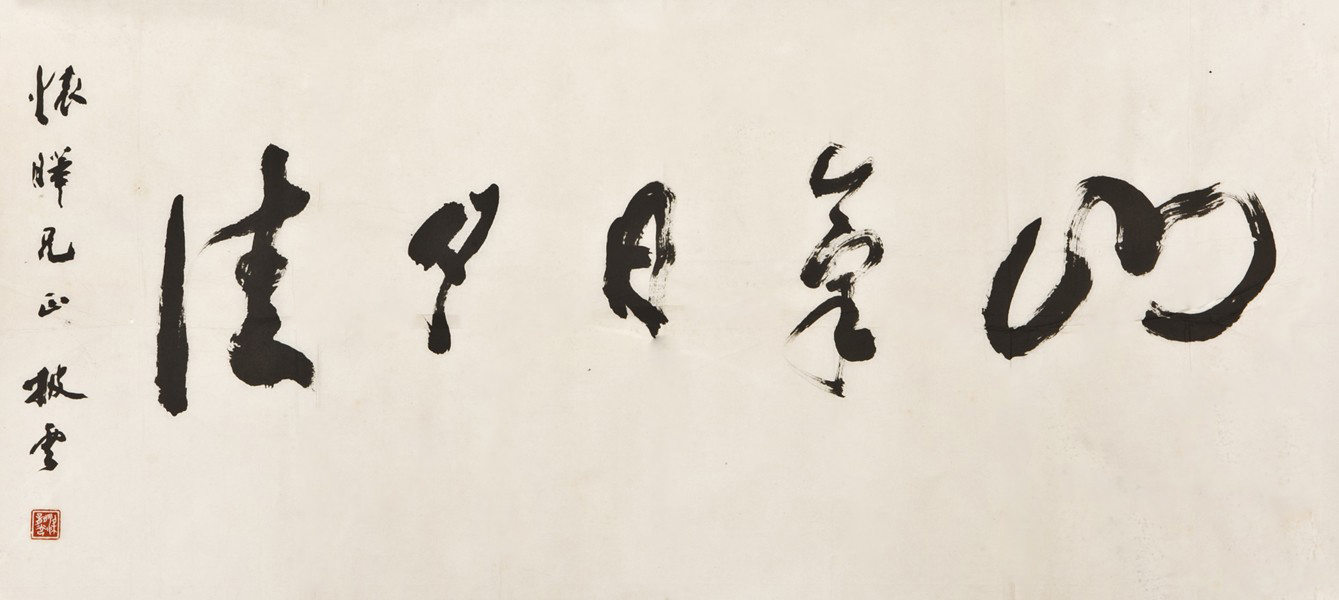 山氣日夕佳
懷暉兄正 披雲